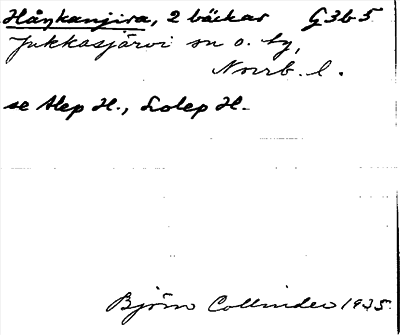 Håykanjira, 2 bäckar G3b5
Jukkasjärvi sn o. by,
Norrb. l.
se Alep H., Lolep H.
Björn Collinder 1935.